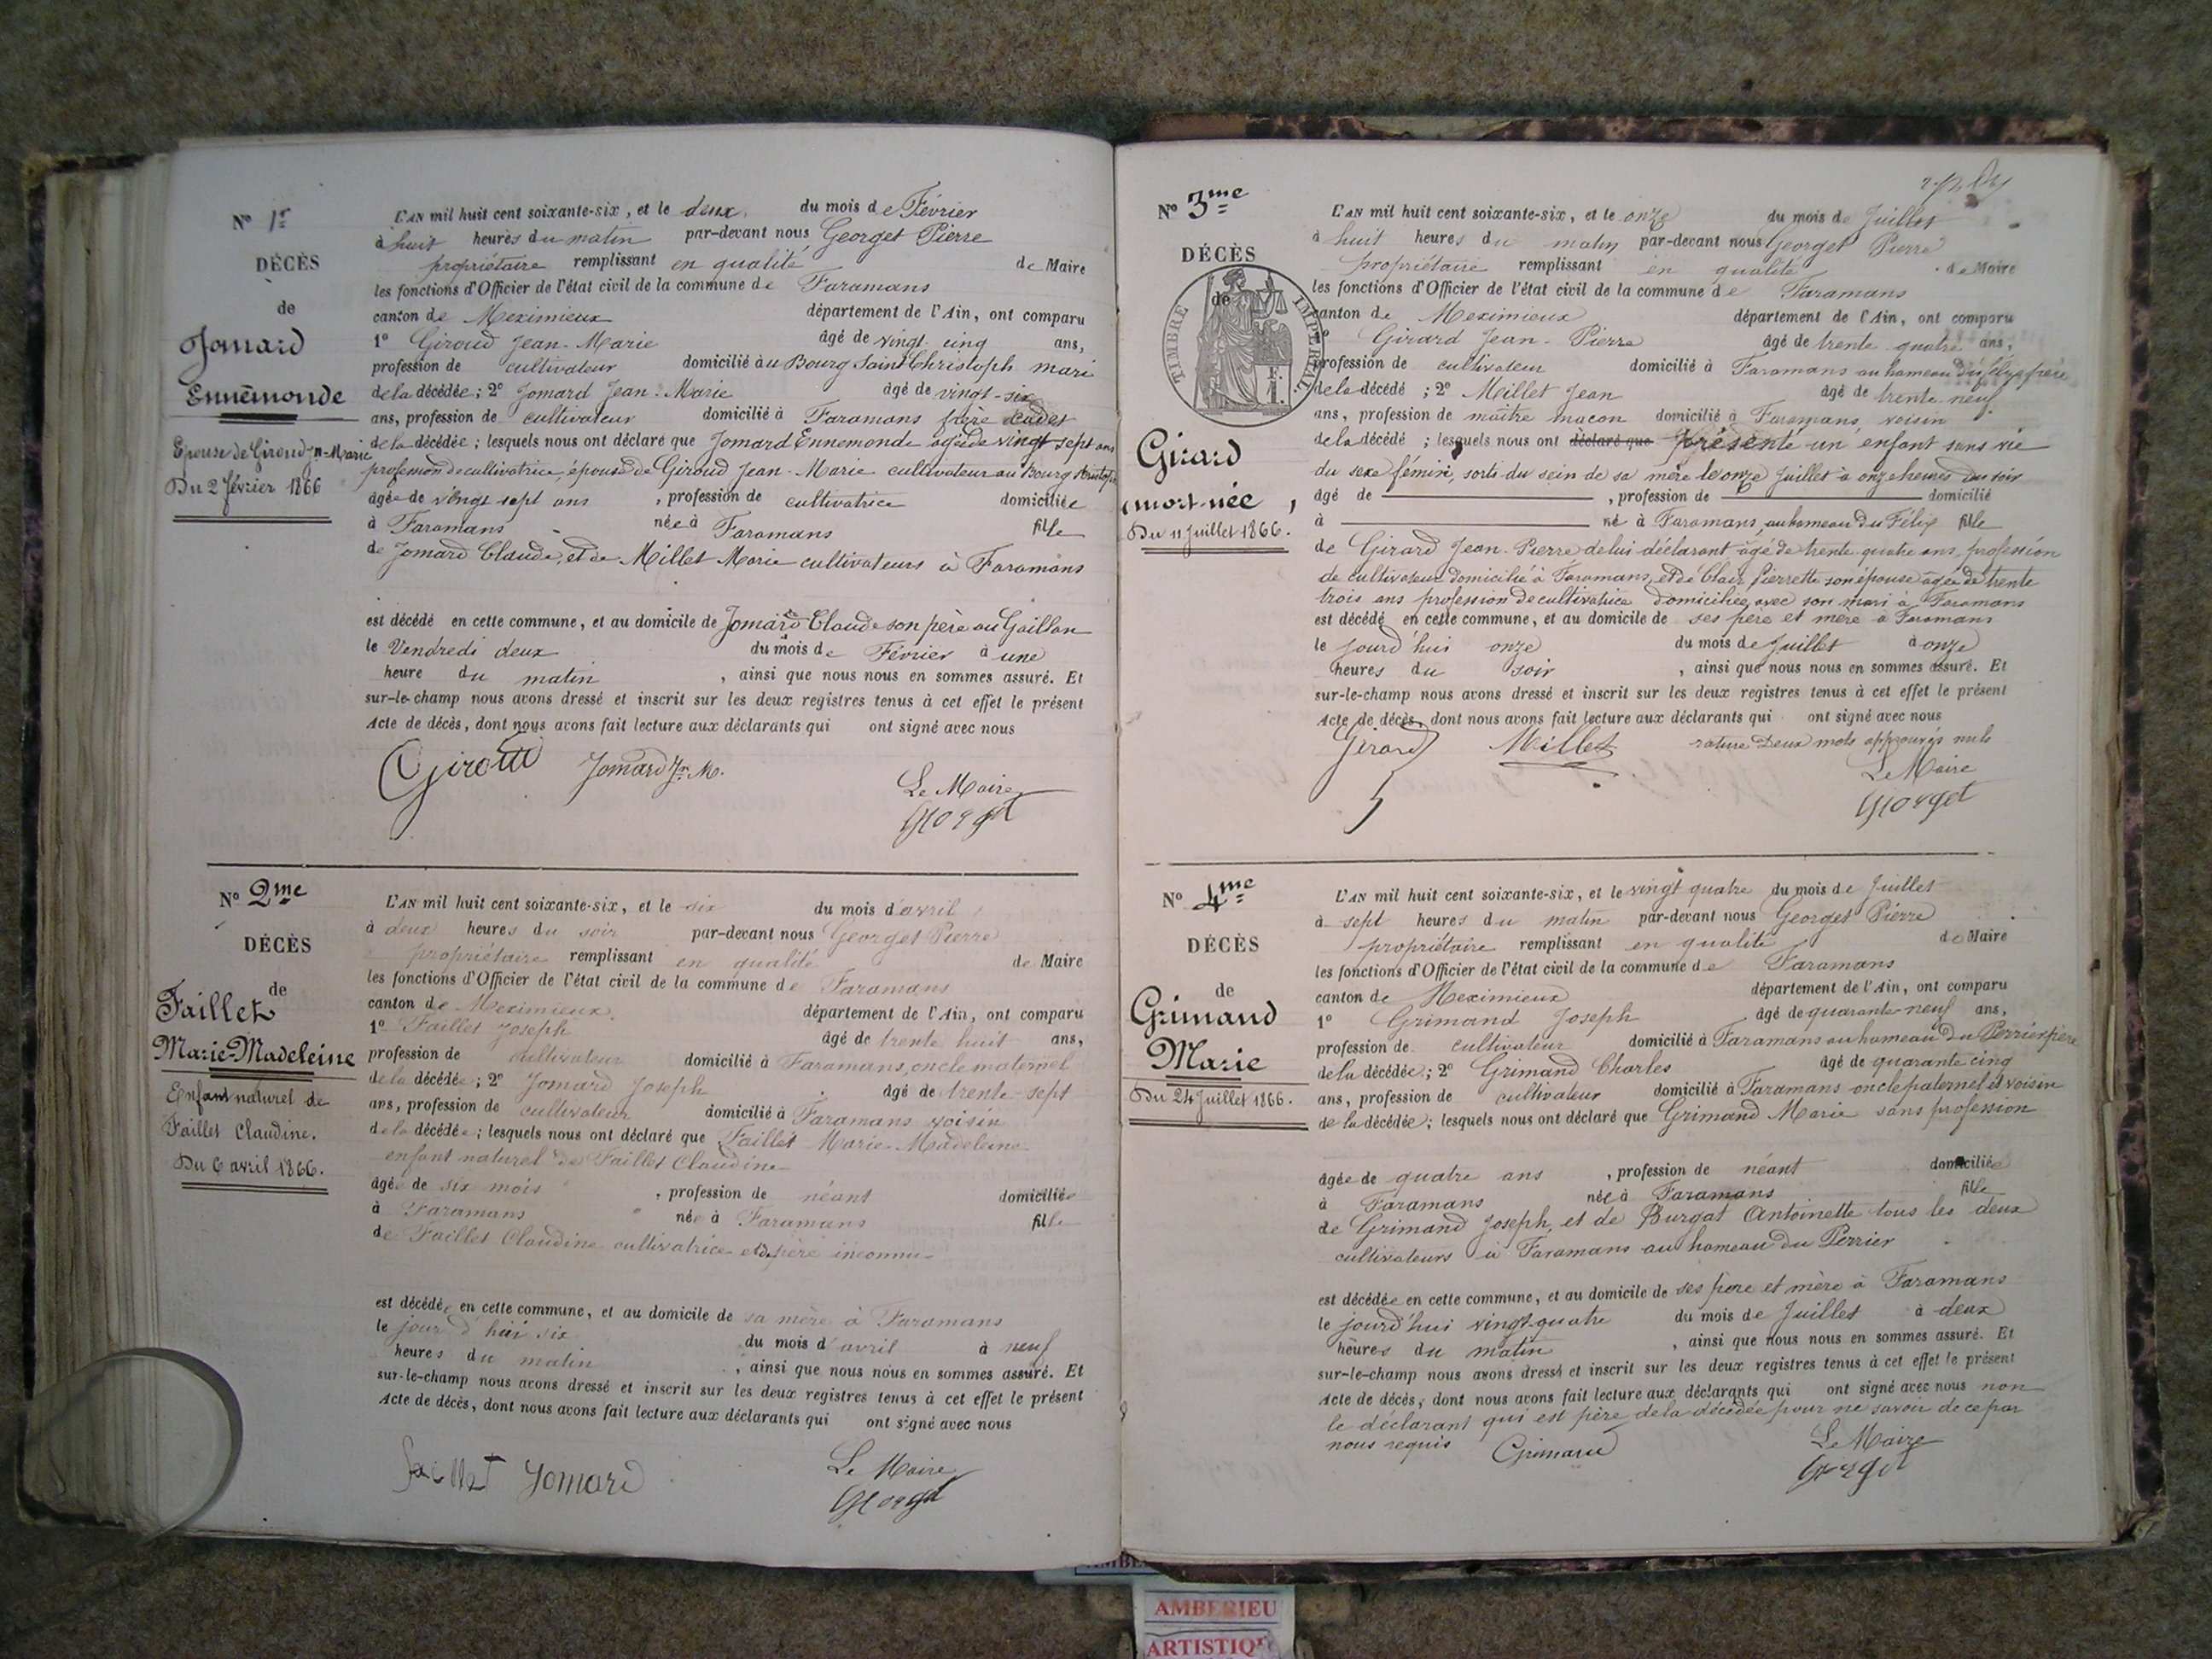 Nº 1r
DÉCÈS
de
Jomard
Ennemonde
Epouse de Giroud Jn-Marie
Du 2 février 1866
L'AN mil huit cent soixante-six, et le deux du mois de Février
à huit heures du matin par-devant nous Georget Pierre
propriétaire remplissant en qualité de Maire
les fonctions d'Officier de l'état civil de la commune de Faramans
canton de Meximieux département de l'Ain, ont comparu
1º Giroud Jean-Marie âgé de vingt cinq ans,
profession de cultivateur domicilié à au Bourg Saint Christoph mari
de la décédée; 2º Jomard Jean-Marie âgé de vingt-six
ans, profession de cultivateur domicilié à Faramans frère cadet
de la décédée; lesquels nous ont déclaré que Jomard Ennemonde agée de vingt sept ans
profession de cultivatrice, épouse de Giroud Jean-Marie cultivateur au Bourg St Christoph
âgée de vingt sept ans, profession de cultivatrice domiciliée
à Faramans née à Faramans fille
de Jomard Claude, et de Millet Marie cultivateurs à Faramans
est décédé en cette commune, et au domicile de Jomard Claude son père au Gaillan
le Vendredi deux du mois de Février à une
heure du matin, ainsi que nous nous en sommes assuré. Et
sur-le-champ nous avons dressé et inscrit sur les deux registres tenus à cet effet le présent
Acte de décès, dont nous avons fait lecture aux déclarants qui ont signé avec nous
Giroud Jomard Jn. M.
Le Maire
Georget
Nº 2me
DÉCÈS
de
Faillet
Marie-Madeleine
Enfant naturel de
Faillet Claudine.
Du 6 avril 1866.
L'AN mil huit cent soixante-six, et le six du mois d'avril
à deux heures du soir par-devant nous Georget Pierre
propriétaire remplissant en qualité de Maire
les fonctions d'Officier de l'état civil de la commune de Faramans
canton de Meximieux département de l'Ain, ont comparu
1º Faillet Joseph âgé de trente huit ans,
profession de cultivateur domicilié à Faramans, oncle maternel
de la décédée; 2º Jomard Joseph âgé de trente-sept
ans, profession de cultivateur domicilié à Faramans voisin
de la décédée; lesquels nous ont déclaré que Faillet Marie-Madeleine
enfant naturel de Faillet Claudine
âgée de six mois, profession de néant domiciliée
à Faramans née à Faramans fille
de Faillet Claudine cultivatrice et de père inconnu
est décédée en cette commune, et au domicile de sa mère à Faramans
le jour d'hui six du mois d'avril à neuf
heures du matin, ainsi que nous nous en sommes assuré. Et
sur-le-champ nous avons dressé et inscrit sur les deux registres tenus à cet effet le présent
Acte de décès, dont nous avons fait lecture aux déclarants qui ont signé avec nous
Faillet Jomard
Le Maire
Georget
Nº 3me
DÉCÈS
de
TIMBRE IMPÉRIAL
Girard
mort-née,
Du 11 Juillet 1866.
L'AN mil huit cent soixante-six, et le onze du mois de Juillet
à huit heures du matin par-devant nous Georget Pierre
propriétaire remplissant en qualité de Maire
les fonctions d'Officier de l'état civil de la commune de Faramans
canton de Meximieux département de l'Ain, ont comparu
1º Girard Jean-Pierre âgé de trente quatre ans,
profession de cultivateur domicilié à Faramans au hameau du félix père
de la décédé; 2º Millet Jean âgé de trente neuf
ans, profession de maître macon domicilié à Faramans, voisin
de la décédé; lesquels nous ont déclaré que présenté un enfant sans vie
du sexe féminin, sorti du sein de sa mère le onze Juillet à onze heures du soir
âgé de , profession de domicilié
à né à Faramans, au hameau du Félix fille
de Girard Jean-Pierre de lui déclarant âgé de trente quatre ans, profession
de cultivateur domicilié à Faramans, et de Clair Pierrette son épouse âgée de trente
trois ans profession de cultivatrice domiciliée avec son mari à Faramans
est décédé en cette commune, et au domicile de ses père et mère à Faramans
le jourd'hui onze du mois de Juillet à onze
heures du soir, ainsi que nous nous en sommes assuré. Et
sur-le-champ nous avons dressé et inscrit sur les deux registres tenus à cet effet le présent
Acte de décès, dont nous avons fait lecture aux déclarants qui ont signé avec nous
Girard Millet rature deux mots approuvés nuls
Le Maire
Georget
Nº 4me
DÉCÈS
de
Grimand
Marie
Du 24 Juillet 1866.
L'AN mil huit cent soixante-six, et le vingt quatre du mois de Juillet
à sept heures du matin par-devant nous Georget Pierre
propriétaire remplissant en qualité de Maire
les fonctions d'Officier de l'état civil de la commune de Faramans
canton de Meximieux département de l'Ain, ont comparu
1º Grimand Joseph âgé de quarante-neuf ans,
profession de cultivateur domicilié à Faramans au hameau du Perrier père
de la décédée; 2º Grimand Charles âgé de quarante cinq
ans, profession de cultivateur domicilié à Faramans oncle paternel et voisin
de la décédée; lesquels nous ont déclaré que Grimand Marie sans profession
âgée de quatre ans, profession de néant domiciliée
à Faramans née à Faramans fille
de Grimand Joseph, et de Burgat Antoinette tous les deux
cultivateurs à Faramans au hameau du Perrier
est décédée en cette commune, et au domicile de ses père et mère à Faramans
le jourd'hui vingt-quatre du mois de Juillet à deux
heures du matin, ainsi que nous nous en sommes assuré. Et
sur-le-champ nous avons dressé et inscrit sur les deux registres tenus à cet effet le présent
Acte de décès, dont nous avons fait lecture aux déclarants qui ont signé avec nous non
le déclarant qui est père de la décédée pour ne savoir de ce par
nous requis Grimand
Le Maire
Georget
AMBERIEU
ARTISTIQ